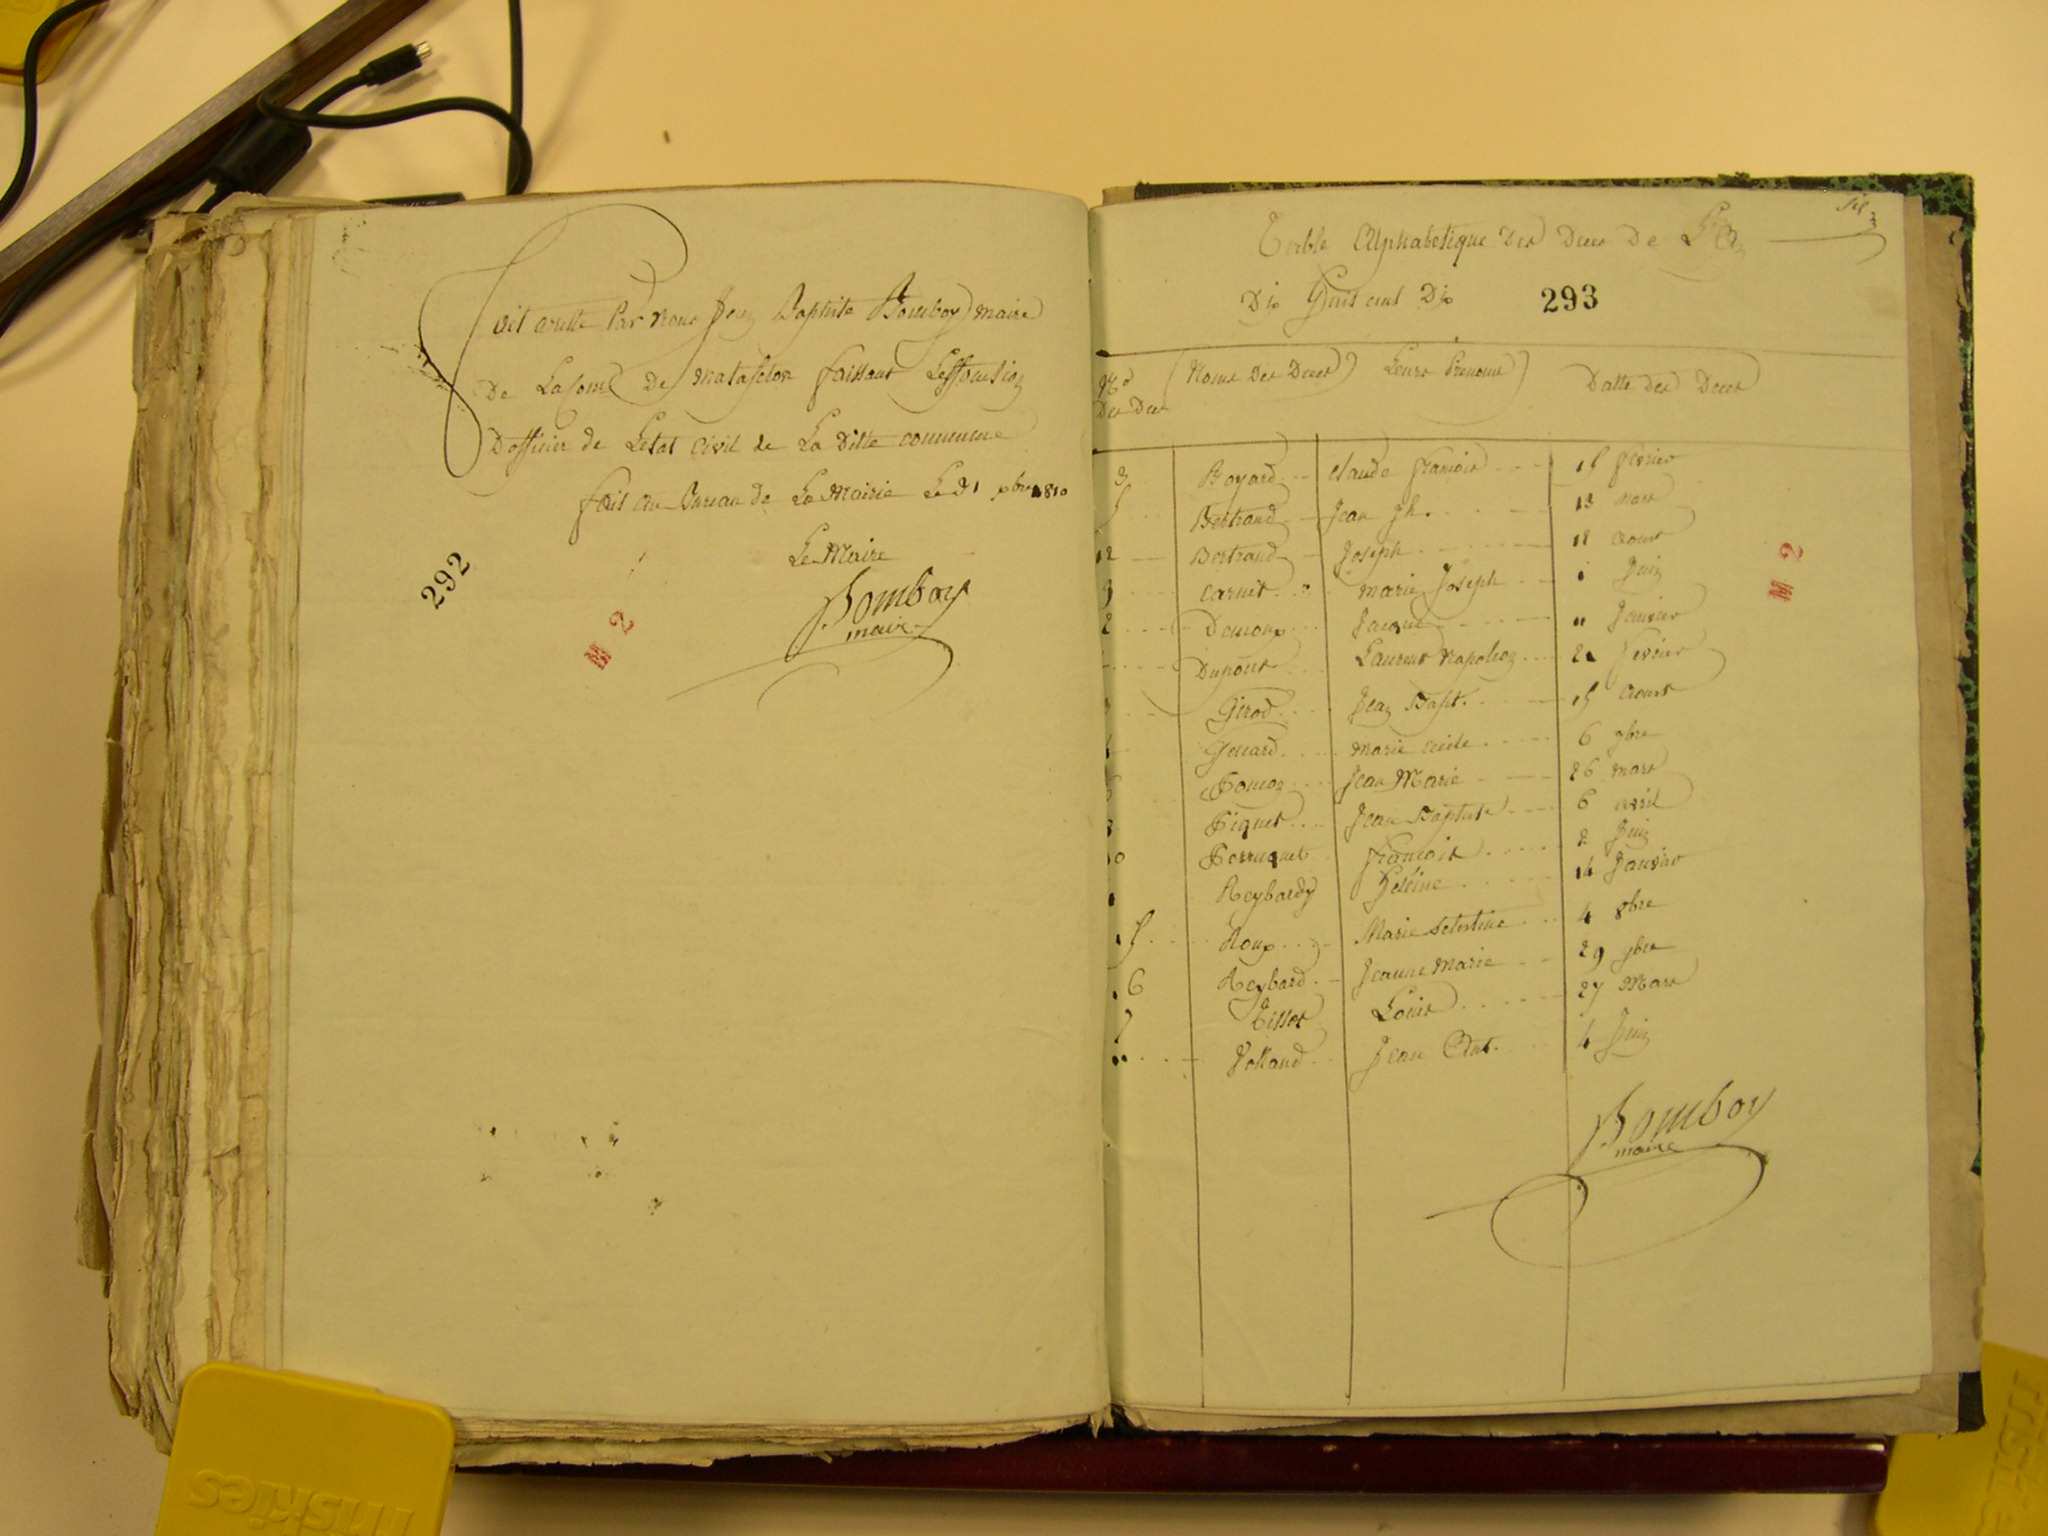 Vet arette Par Nous Jean Baptiste Bomboy maire
De La Com De Matafelon faissant Les fonction
D'officier de Letat Civil de La Ditte commune
fait au Bureau de La Mairie Le 31 xbre 1810
Le Maire
Bomboy
maire
292
M 2
Table Alphabetique Des Deces De L'an
Dix Huit cent Dix
293
No Des Deces Noms Des Deces Leurs Prenoms Datte Des Deces
3 Boyard Claude François 15 fevrier
5 Bertrand Jean Jh. 13 Mars
12 Bertrand Joseph 18 Aoust
9 Carnet marie Joseph 1 Juin
2 Demoux Jacque 11 Janvier
Dupont Laurent Napoleon 21 Fevrier
Girod Jean Bapt. 15 Aoust
Genard Marie Cecile 6 9bre
6 Jean Marie 26 mars
8 Piquet Jean Baptiste 6 avril
10 Perruquet François 2 Juin
1 Reybardy Heleine 14 Janvier
15 Roux Marie Celestine 4 8bre
16 Reybard Jeanne Marie 29 9bre
7 Tissot Louis 27 Mars
11 Volland Jean Ant. 4 Juin
M 2
Bomboy
maire
friskies